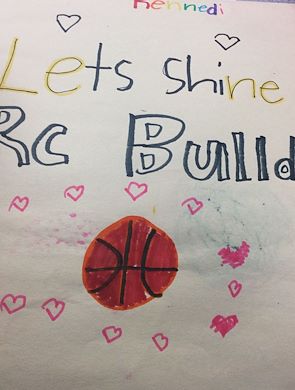 Kennedi
Lets shine
Rc Bulld